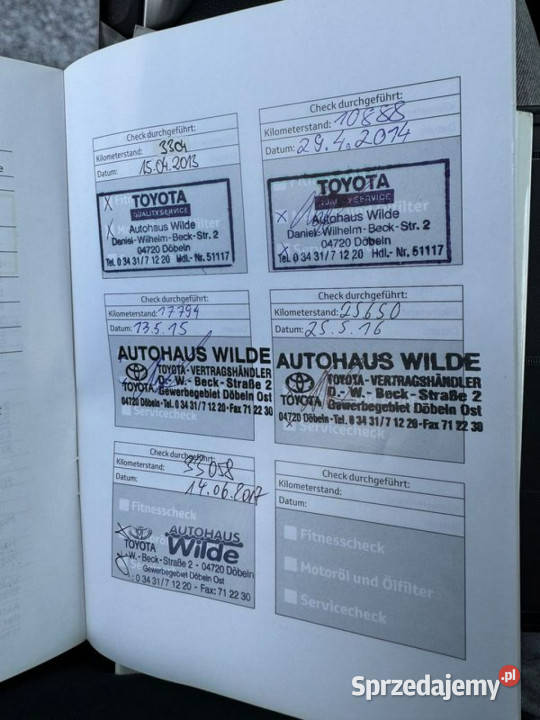 Check durchgeführt:
Kilometerstand: 3304
Datum: 15.04.2013
TOYOTA
QUALITY SERVICE
Autohaus Wilde
Daniel-Wilhelm-Beck-Str. 2
04720 Döbeln
Tel. 0 34 31/7 12 20 Hdl.-Nr. 51117
Check durchgeführt:
Kilometerstand: 10888
Datum: 29.4.2014
TOYOTA
Autohaus Wilde
Daniel-Wilhelm-Beck-Str. 2
04720 Döbeln
Tel. 0 34 31/7 12 20 Hdl.-Nr. 51117
Check durchgeführt:
Kilometerstand: 17794
Datum: 13.5.15
AUTOHAUS WILDE
TOYOTA-VERTRAGSHÄNDLER
D.-W.-Beck-Straße 2
TOYOTA Gewerbegebiet Döbeln Ost
04720 Döbeln-Tel. 0 34 31/7 12 20-Fax 71 22 30
Servicecheck
Check durchgeführt:
Kilometerstand: 25650
Datum: 25.5.16
AUTOHAUS WILDE
TOYOTA-VERTRAGSHÄNDLER
D.-W.-Beck-Straße 2
TOYOTA Gewerbegebiet Döbeln Ost
04720 Döbeln-Tel. 0 34 31/7 12 20-Fax 71 22 30
Servicecheck
Check durchgeführt:
Kilometerstand: 33058
Datum: 14.06.2017
AUTOHAUS
TOYOTA Wilde
W.-Beck-Straße 2 - 04720 Döbeln
Gewerbegebiet Döbeln Ost
0 34 31/7 12 20 - Fax: 71 22 30
Check durchgeführt:
Kilometerstand:
Datum:
Fitnesscheck
Motoröl und Ölfilter
Servicecheck
Sprzedajemy.pl